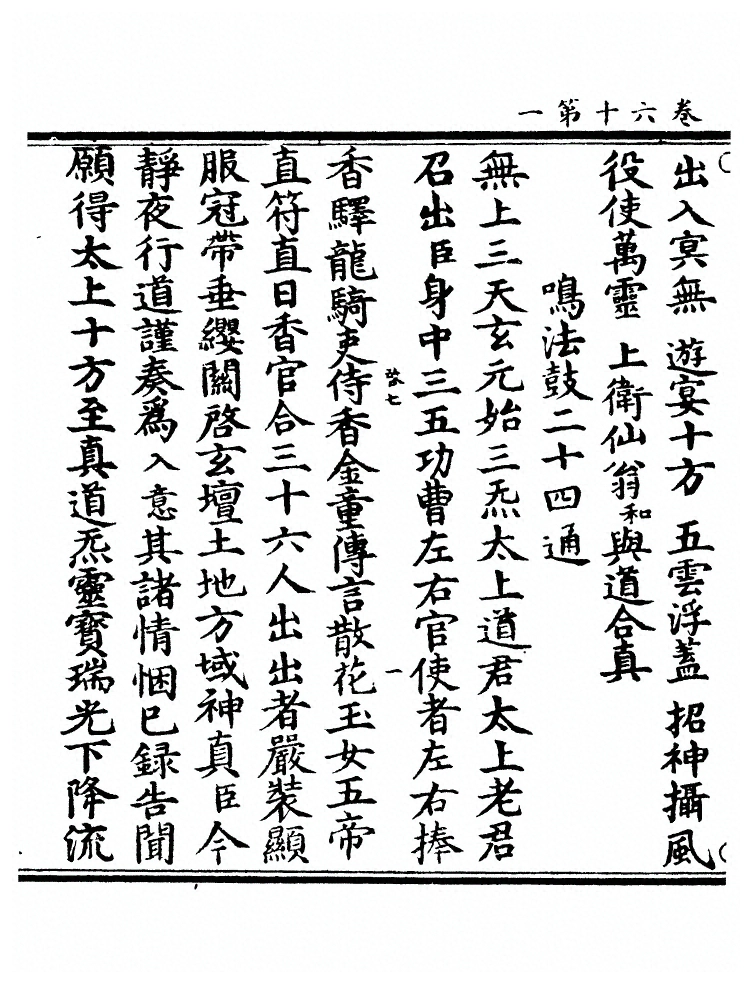 卷六十第一
出入冥無 遊宴十方 五雲浮蓋 招神攝風
役使萬靈 上衛仙翁和與道合真
鳴法鼓二十四通
無上三天玄元始三炁太上道君太上老君
召出臣身中三五功曹左右官使者左右捧
啓七 一
香驛龍騎吏侍香金童傳言散花玉女五帝
直符直日香官合三十六人出出者嚴裝顯
服冠帶垂纓關啓玄壇土地方域神真臣今
靜夜行道謹奏為入意其諸情悃已録告聞
願得太上十方至真道炁靈寶瑞光下降流